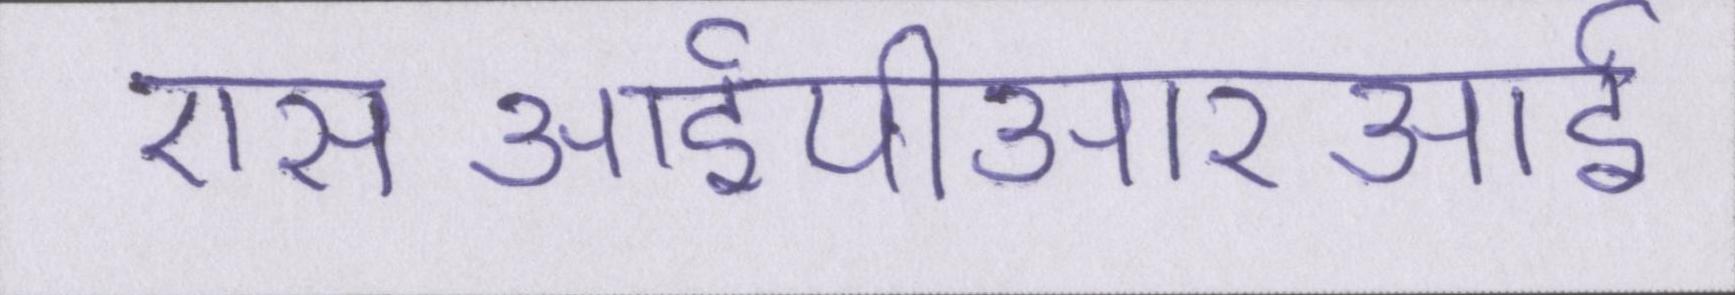 एसआईपीआरआई